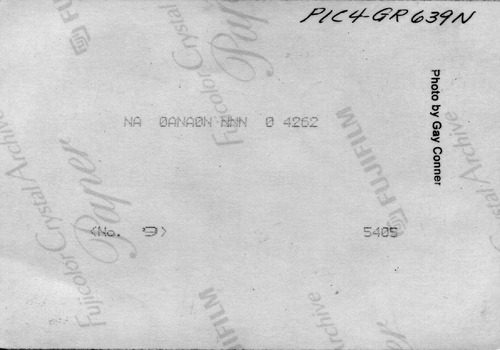 PIC4-GR639N
FUJIFILM
Fujicolor Crystal Archive
Paper
Photo by Gay Conner
NA 0ANA0N NNN 0 4262
FUJIFILM
Fujicolor Crystal Archive
Paper
Crystal Archive
<No. 9> 5405
FUJIFILM
Fujicolor
Paper